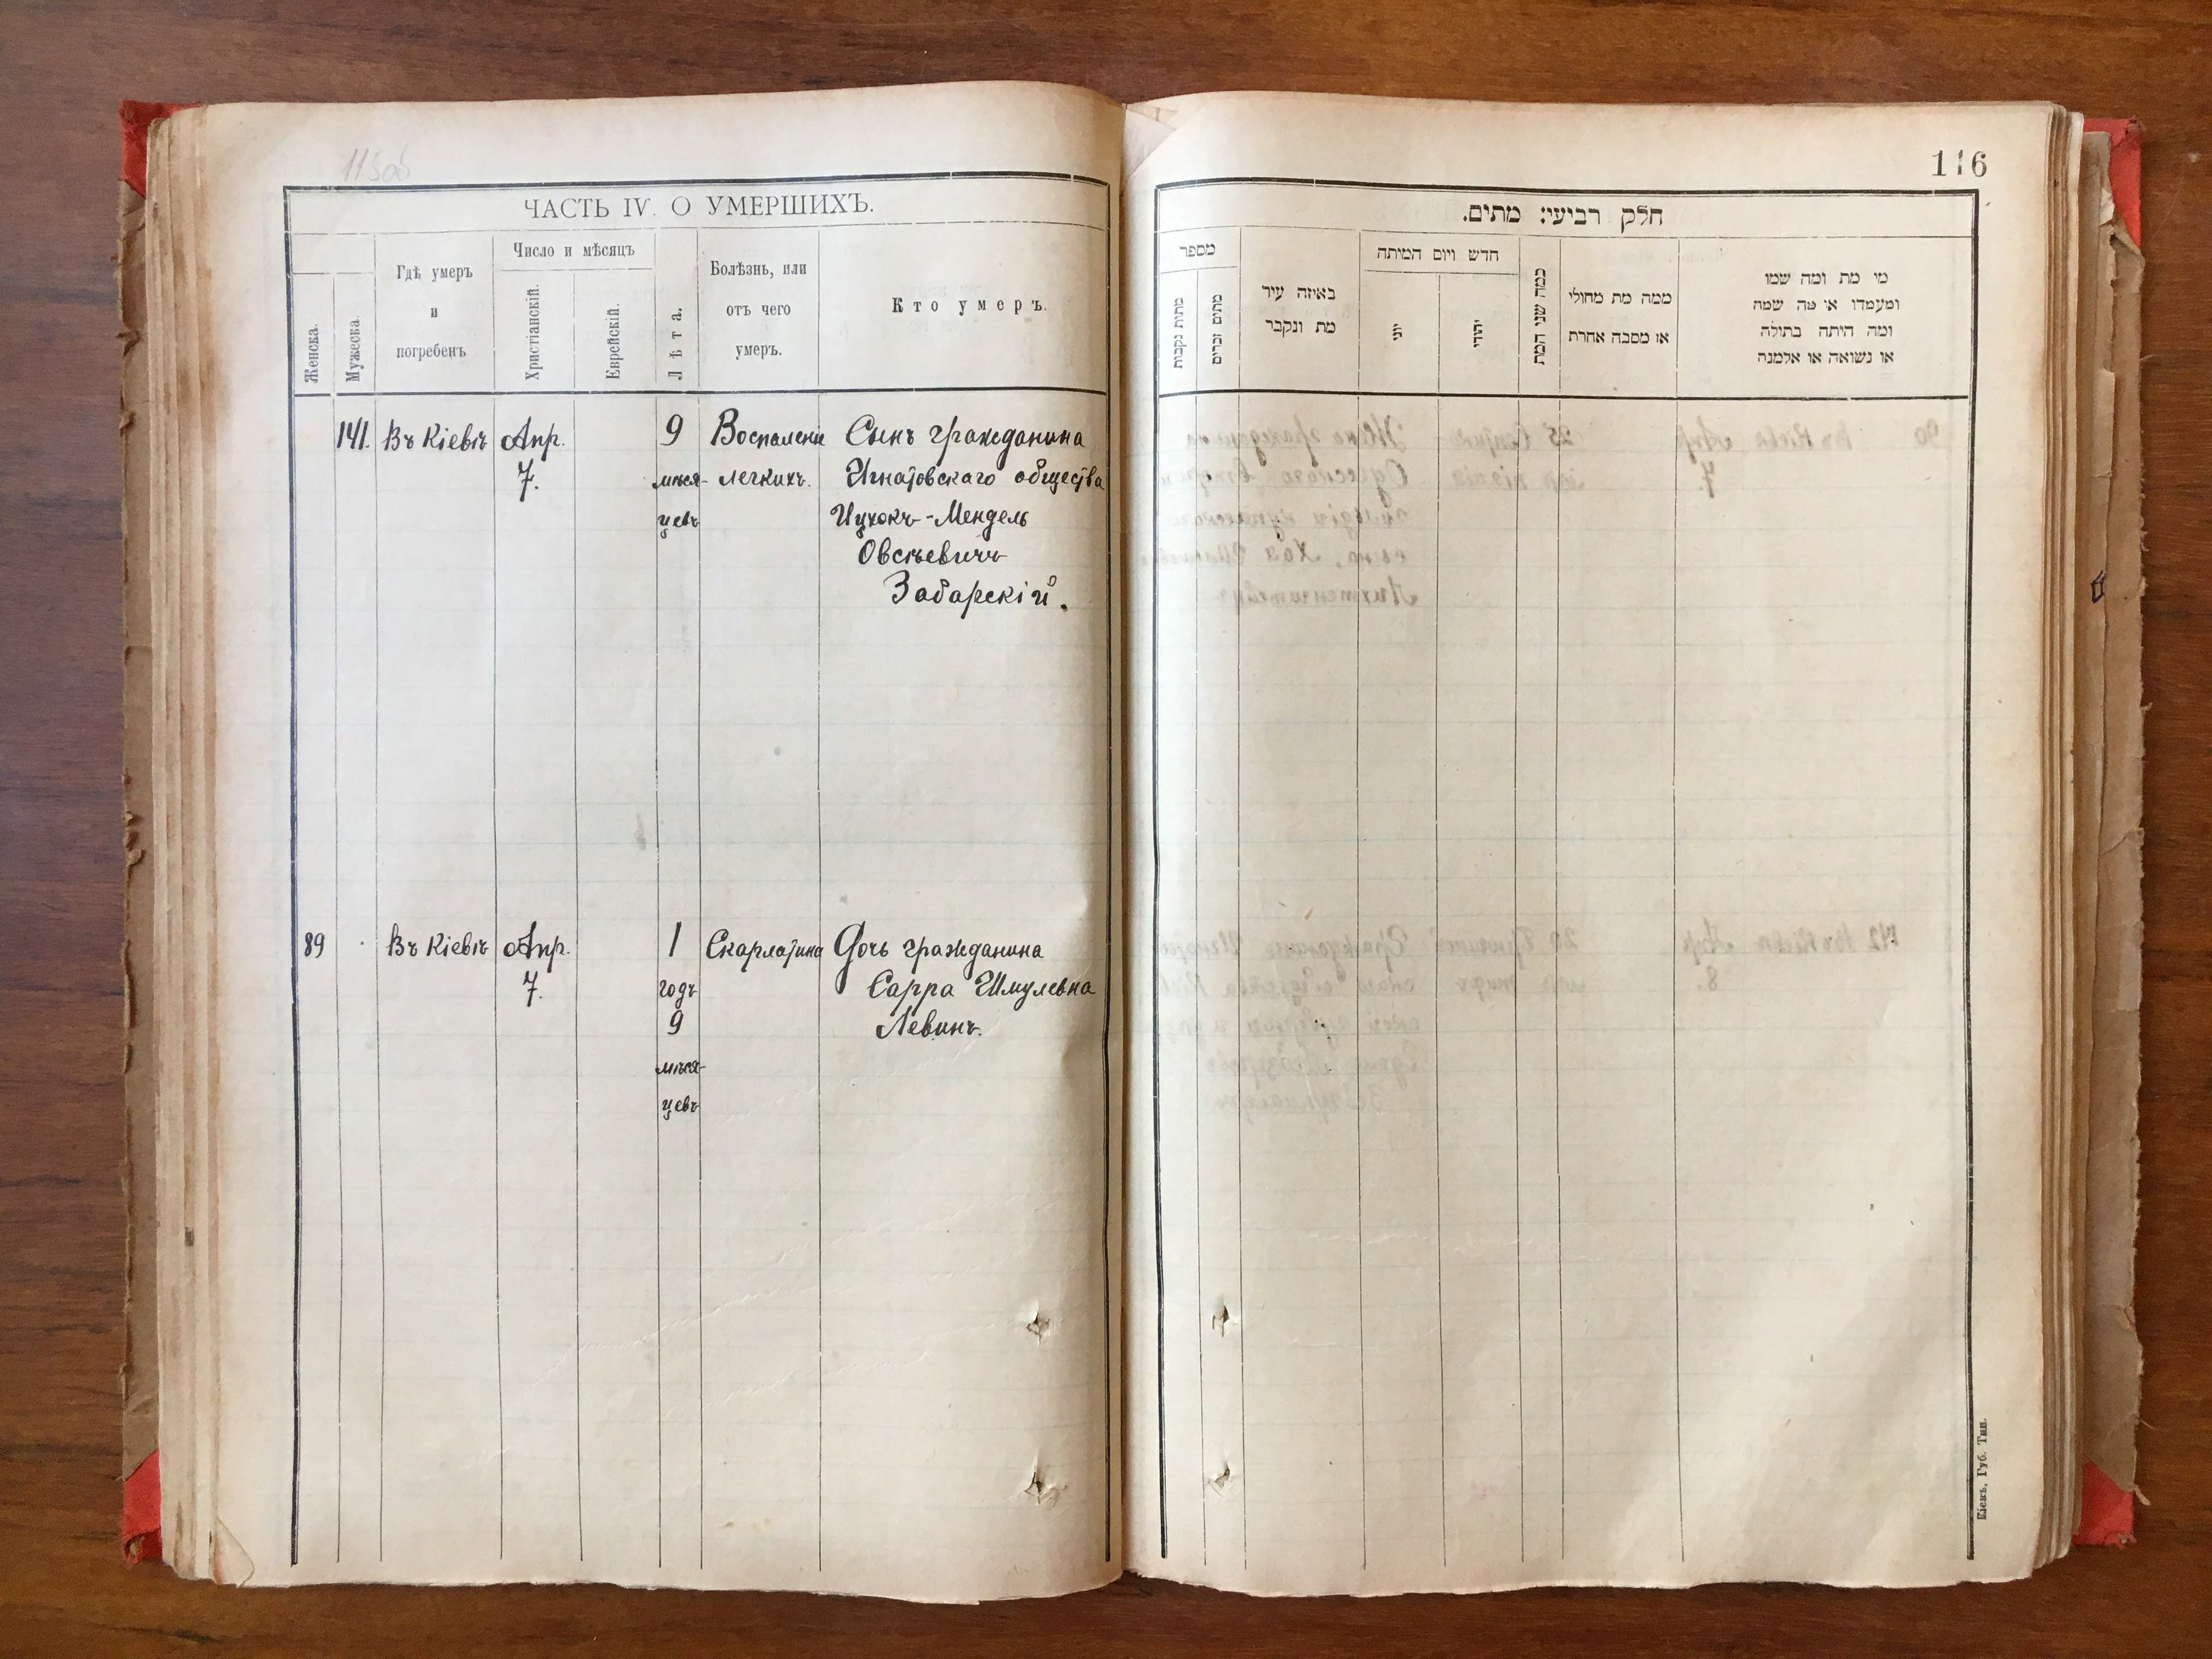 115об
ЧАСТЬ IV. О УМЕРШИХЪ.
Женска.
Мужеска.
Гдѣ умеръ
и
погребенъ
Число и мѣсяцъ
Христіанскій.
Еврейскій.
Лѣта.
Болѣзнь, или
отъ чего
умеръ.
Кто умеръ.
141. Въ Кіевѣ Апр. 9 Воспаленіе Сынъ гражданина
7. мѣся- легкихъ. Игнатовскаго общества
цевъ Ицхокъ-Мендель
Овсѣевичъ
Забарскій.
89 Въ Кіевѣ Апр. 1 Скарлатина Дочь гражданина
7. годъ Сарра Шмулевна
9 Левинъ.
мѣся-
цевъ
116
חלק רביעי: מתים.
מספר
מתות נקבות
מתים זכרים
באיזה עיר
מת ונקבר
חדש ויום המיתה
יוני
יהודי
כמה שני המת
ממה מת מחולי
או מסבה אחרת
מי מת ומה שמו
ומעמדו או מה שמה
ומה היתה בתולה
או נשואה או אלמנה
Кіевъ, Губ. Тип.